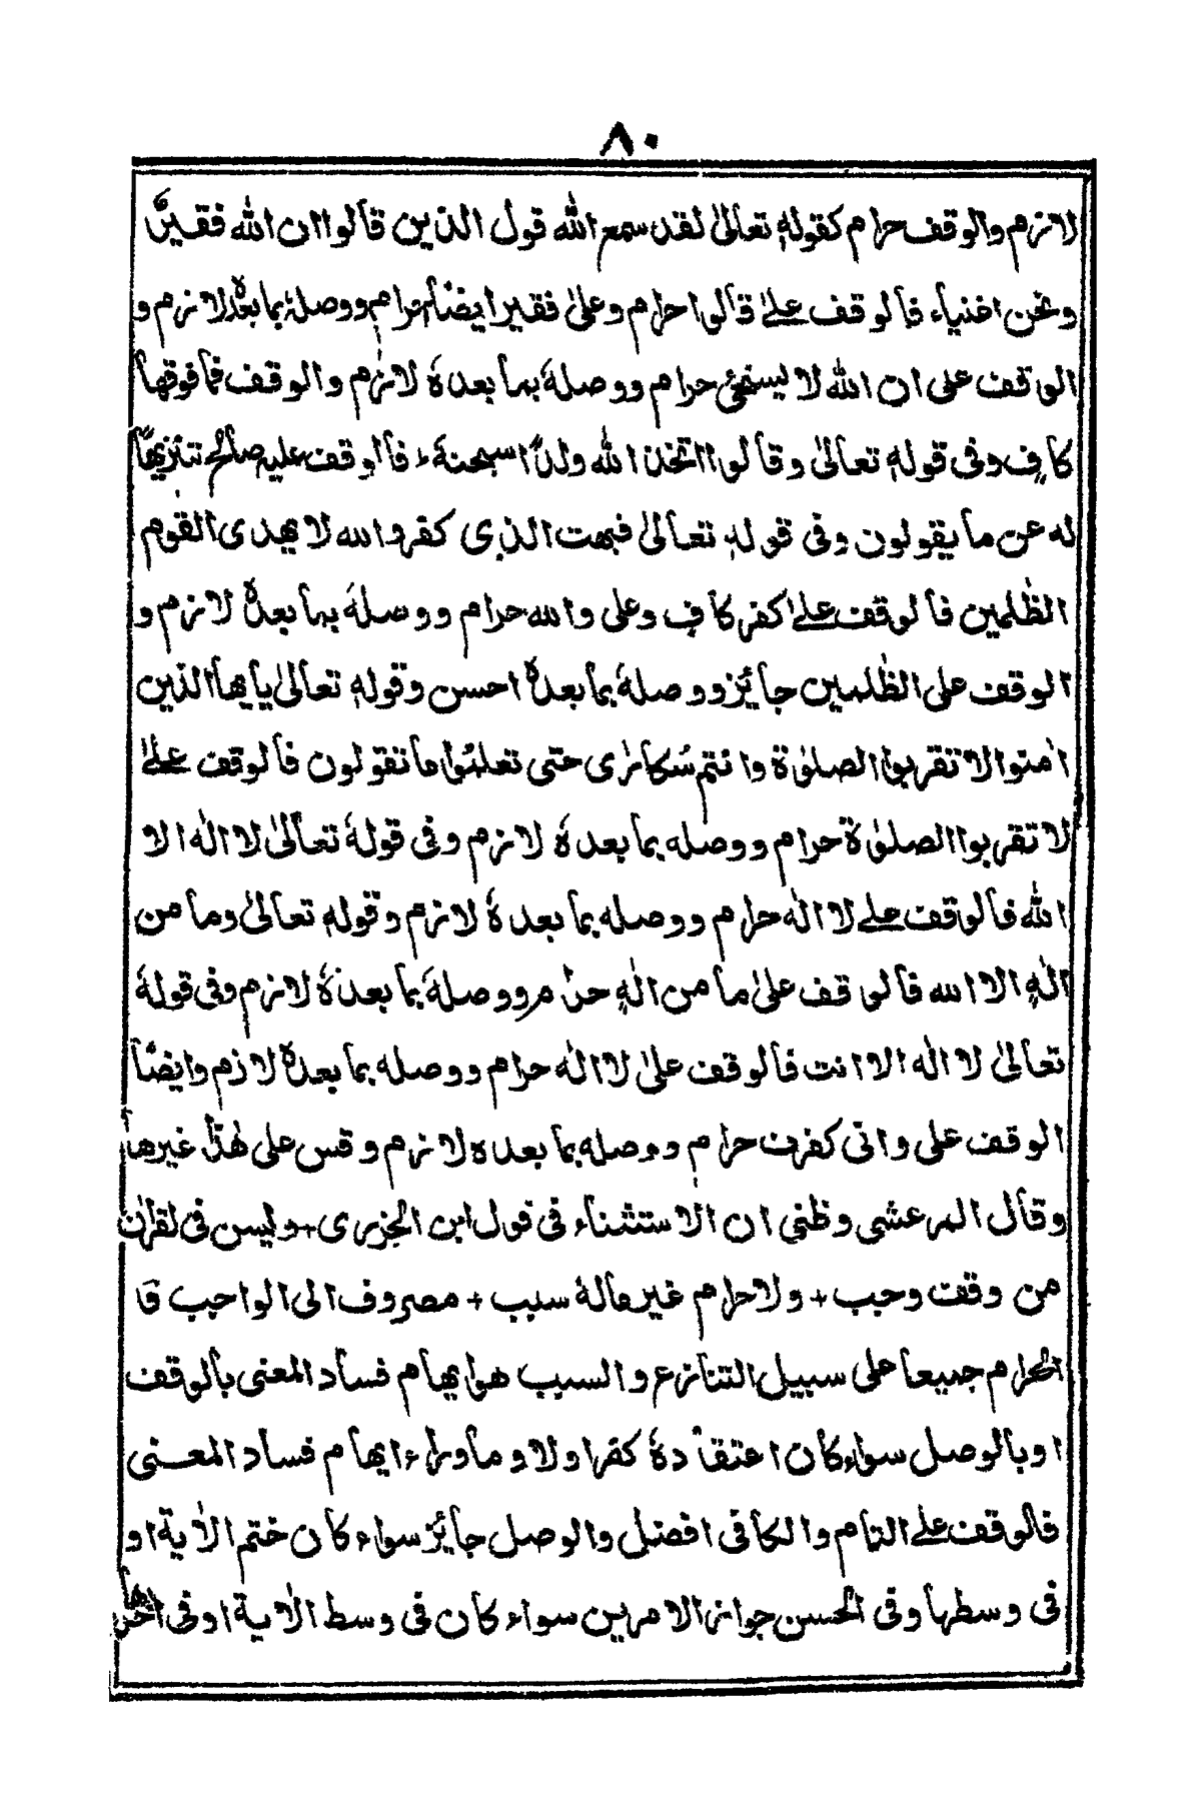 ٨٠
لازم والوقف حرام كقوله تعالىٰ لقد سمع الله قول الذين قالوا ان الله فقيرٌ
ونحن اغنياء فالوقف علىٰ قالوا حرام وعلىٰ فقير ايضًا حرام ووصله بما بعدهٗ لازم و
الوقف على ان الله لا يستحيي حرام ووصلهٗ بما بعدهٗ لازم والوقف فما فوقها
كافٍ وفى قولهٖ تعالىٰ وقالوا اتخذ الله ولدًا سبحنهٗ فالوقف عليه صالح تنزيهًا
له عن ما يقولون وفى قولهٖ تعالىٰ فبهت الذى كفر والله لا يهدى القوم
الظٰلمين فالوقف علىٰ كفر كافٍ وعلى والله حرام ووصلهٗ بما بعدهٗ لازم و
الوقف على الظٰلمين جائز ووصلهٗ بما بعدهٗ احسن وقولهٖ تعالىٰ يايها الذين
اٰمنوا لا تقربوا الصلوٰة وانتم سُكارٰى حتى تعلمُوا ما تقولون فالوقف علىٰ
لا تقربوا الصلوٰة حرام ووصله بما بعدهٗ لازم وفى قولهٗ تعالىٰ لا الٰه الا
الله فالوقف علے لا الٰه حرام ووصله بما بعدهٗ لازم وقولهٖ تعالىٰ وما من
الٰهٍ الا الله فالوقف علىٰ ما من الٰهٍ حرام ووصلهٗ بما بعدهٗ لازم وفى قولهٗ
تعالىٰ لا الٰه الا انت فالوقف علىٰ لا الٰه حرام ووصله بما بعدهٗ لازم وايضًا
الوقف على وانى كفرت حرام ووصله بما بعده لازم وقس على هٰذا غيرها
وقال المرعشى وظنى ان الاستثناء فى قول ابن الجزرى + وليس فى القراٰن
من وقف وجب + ولا حرام غير مالهٗ سبب + مصروف الى الواجب و
الحرام جميعا على سبيل التنازع والسبب هو ايهام فساد المعنى بالوقف
او بالوصل سواء كان اعتقادهٗ كفرا ولا وما وراء ايهام فساد المعنى
فالوقف علے التام والكافى افضل والوصل جائز سواء كان ختم الاٰية او
فى وسطها وفى الحسن جواز الامرين سواء كان فى وسط الاٰية او فى اٰخرها